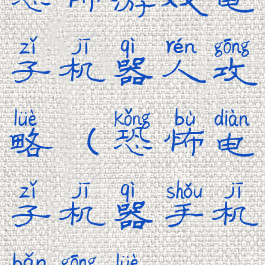 恐怖游戏电
zǐ jī qì rén gōng
子机器人攻
lüè kǒng bù diàn
略（恐怖电
zǐ jī qì shǒu jī
子机器手机
bǎn gōng lüè